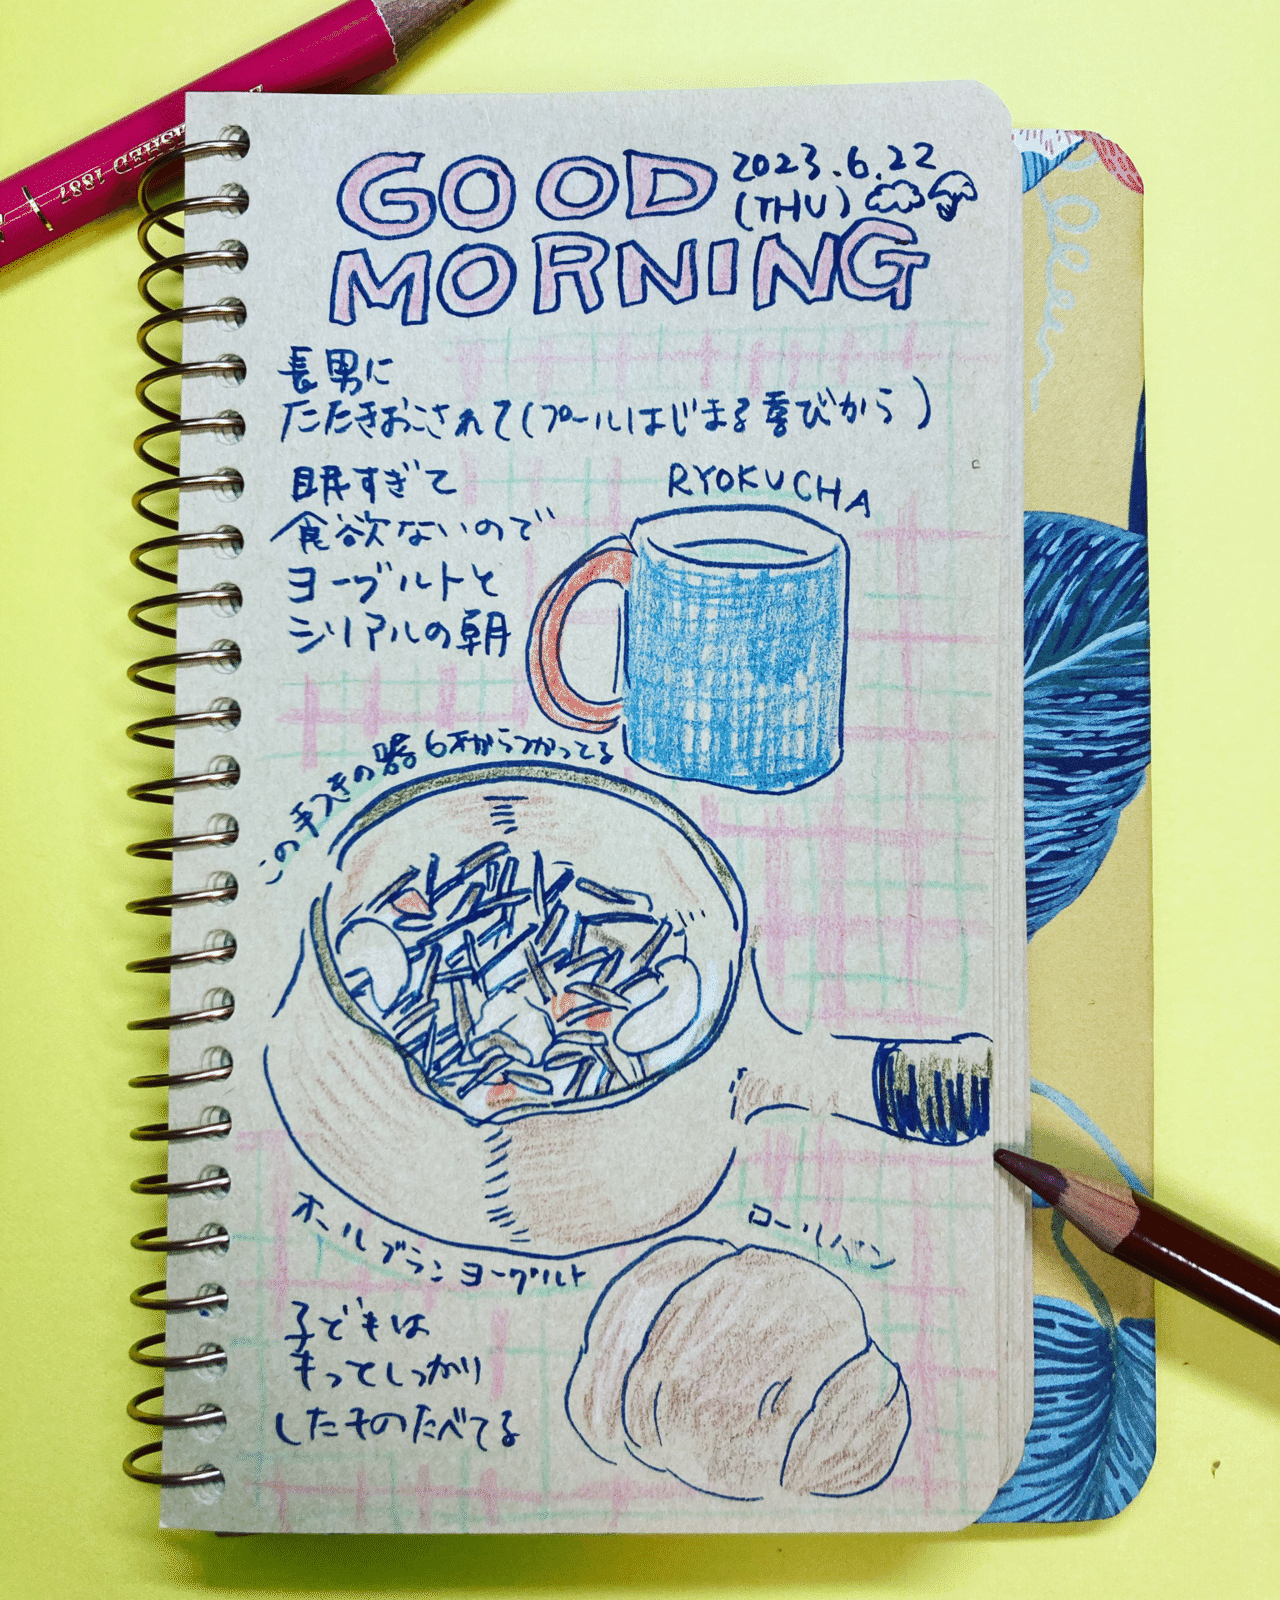 GOOD
MORNING
2023.6.22
(THU)
長男に
たたきおこされて(プールはじまる喜びから)
眠すぎて
食欲ないので
ヨーグルトと
シリアルの朝
RYOKUCHA
この手つきの器 6才からつかってる
オールブランヨーグルト
ロールパン
子どもは
もってしっかり
したものたべてる
1887